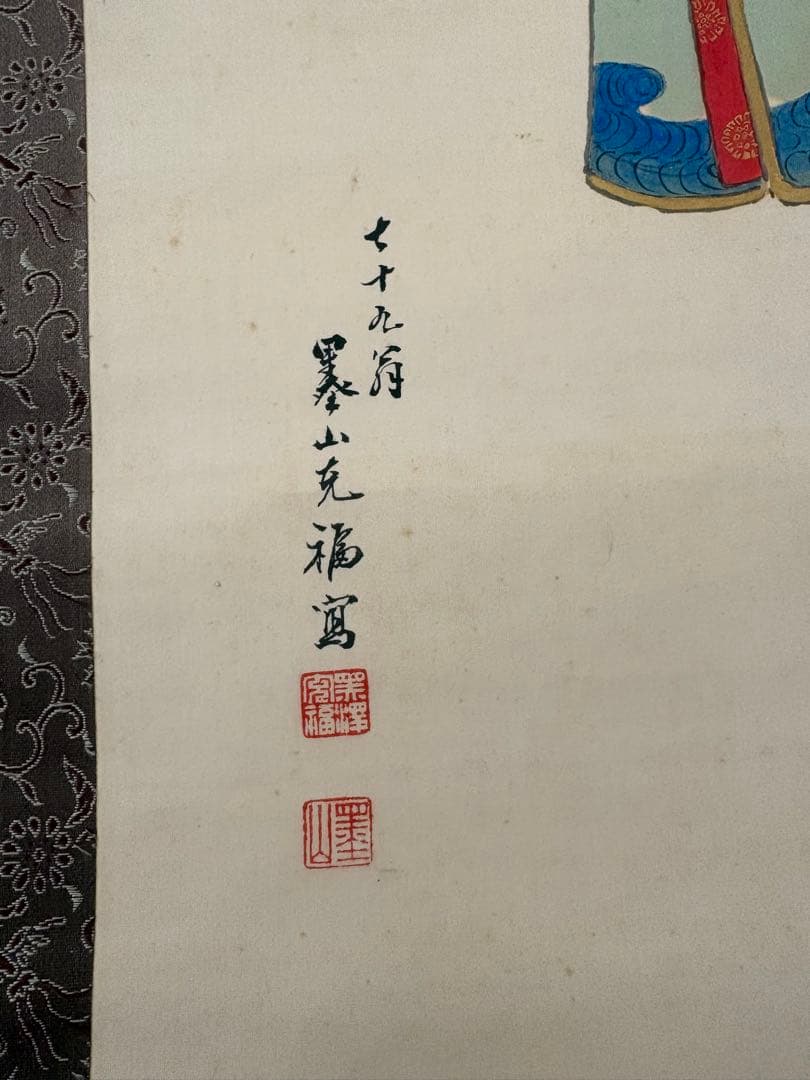 七十九翁
墨山克福寫
黑澤克福
墨山